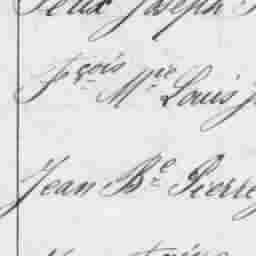 Felix Joseph
Fçois Mie Louis J
Jean Bte Pierre